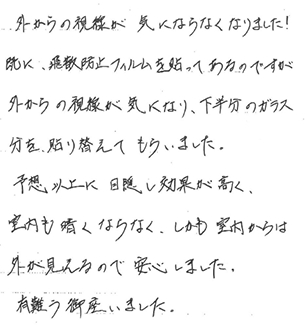 外からの視線が 気にならなくなりました!
既に、飛散防止フィルムを貼ってあるのですが
外からの視線が気になり、下半分のガラス
分を貼り替えてもらいました。
予想以上に目隠し効果が高く、
室内も暗くならなく、しかも室内からは
外が見えるので安心しました。
有難う御座いました。